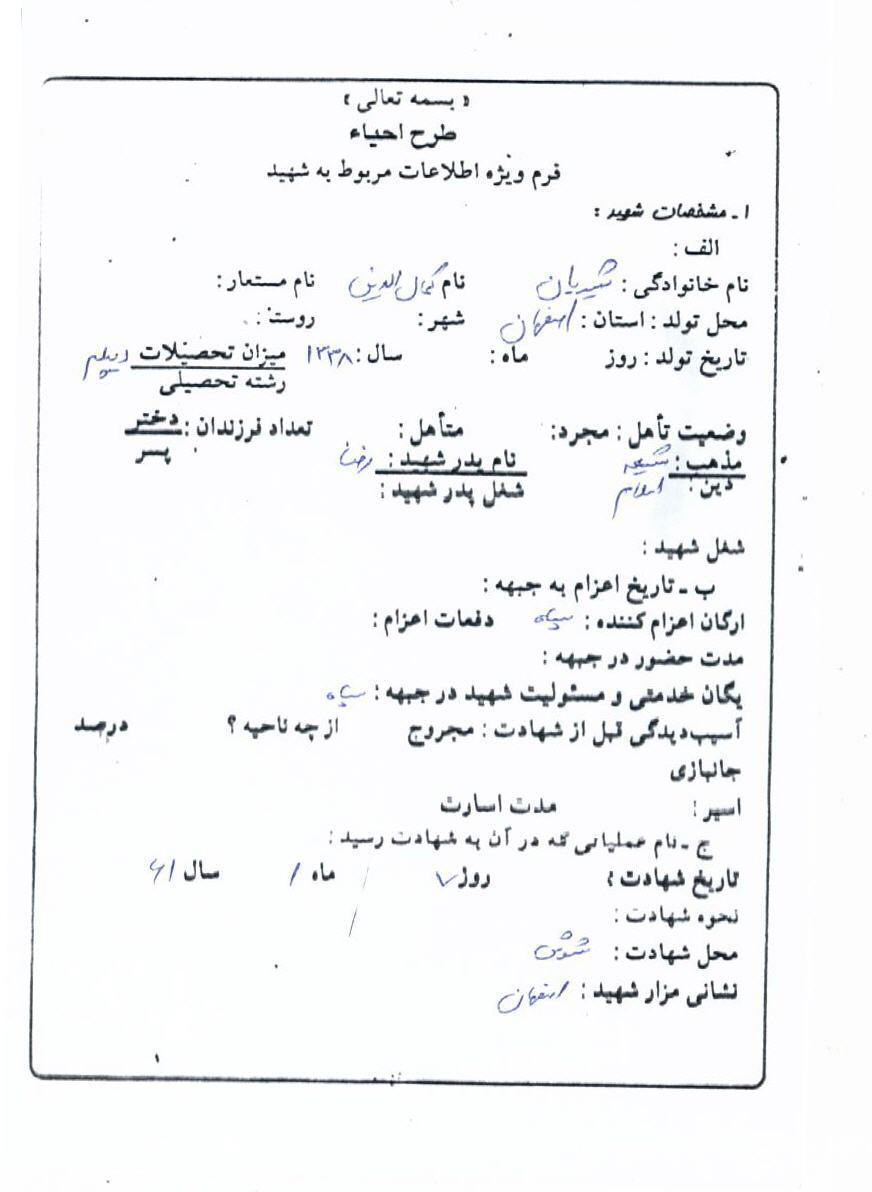 « بسمه تعالی »
طرح احیاء
فرم ویژه اطلاعات مربوط به شهید
۱ ـ مشخصات شهید :
الف :
نام خانوادگی : شیریان نام کمال الدین نام مستعار :
محل تولد : استان : اصفهان شهر : روستا :
تاریخ تولد : روز ماه : سال : ۱۳۳۸ میزان تحصیلات دیپلم
رشته تحصیلی
وضعیت تأهل : مجرد : متأهل : تعداد فرزندان : دختر
پسر
مذهب : شیعه نام پدر شهید : رضا
دین : اسلام شغل پدر شهید :
شغل شهید :
ب ـ تاریخ اعزام به جبهه :
ارگان اعزام کننده : سپاه دفعات اعزام :
مدت حضور در جبهه :
یگان خدمتی و مسئولیت شهید در جبهه : سپاه
آسیب‌دیدگی قبل از شهادت : مجروح از چه ناحیه ؟ درصد
جانبازی
اسیر : مدت اسارت
ج ـ نام عملیاتی که در آن به شهادت رسید :
تاریخ شهادت : روز ۷ ماه ۱ سال ۶۱
نحوه شهادت :
محل شهادت : شوش
نشانی مزار شهید : اصفهان
۱